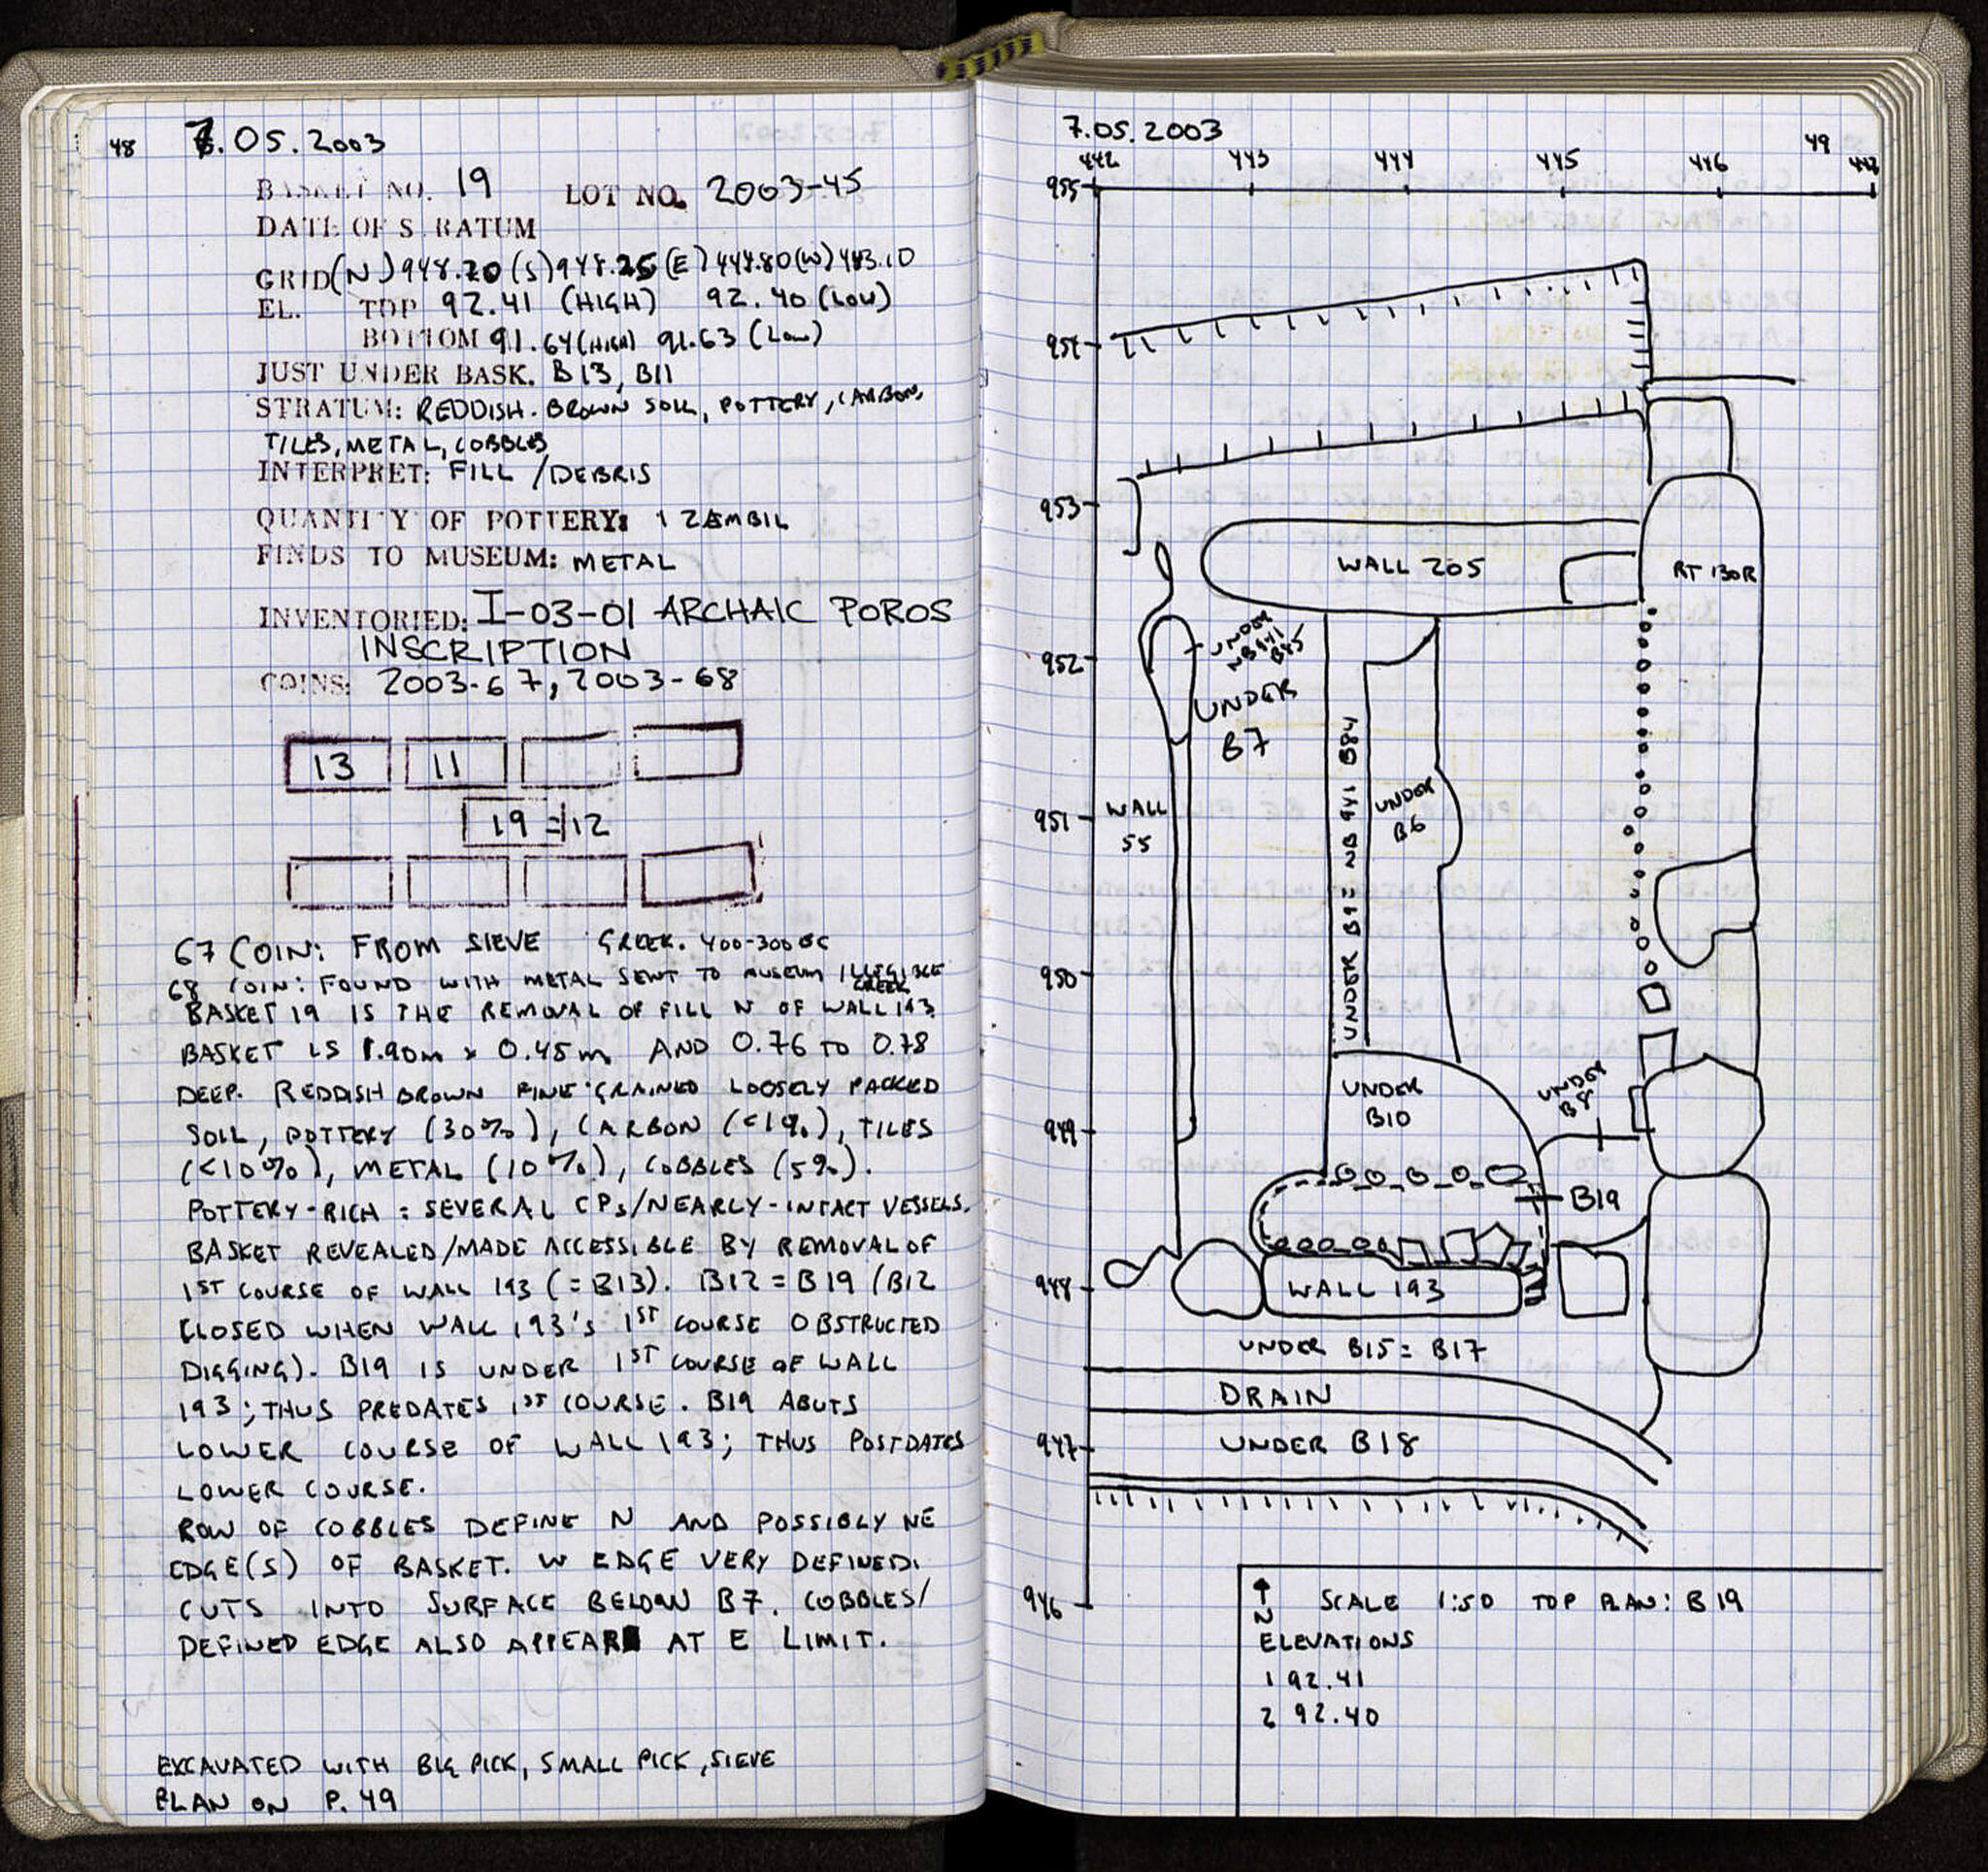 48
7.05.2003
BASKET NO. 19 LOT NO. 2003-45
DATE OF STRATUM
GRID (N) 948.20 (S) 948.25 (E) 444.80 (W) 443.10
EL. TOP 92.41 (HIGH) 92.40 (LOW)
BOTTOM 91.64 (HIGH) 91.63 (LOW)
JUST UNDER BASK. B13, B11
STRATUM: REDDISH-BROWN SOIL, POTTERY, CARBON,
TILES, METAL, COBBLES
INTERPRET: FILL / DEBRIS
QUANTITY OF POTTERY: 1 ZAMBIL
FINDS TO MUSEUM: METAL
INVENTORIED: I-03-01 ARCHAIC POROS
INSCRIPTION
COINS: 2003-67, 2003-68
13 11
19 = 12
67 COIN: FROM SIEVE GREEK. 400-300 BC
68 COIN: FOUND WITH METAL SENT TO MUSEUM ILLEGIBLE
GREEK
BASKET 19 IS THE REMOVAL OF FILL N OF WALL 193
BASKET IS 1.90m x 0.45m AND 0.76 TO 0.78
DEEP. REDDISH BROWN FINE-GRAINED LOOSELY PACKED
SOIL, POTTERY (30%), CARBON (<1%), TILES
(<10%), METAL (10%), COBBLES (5%).
POTTERY-RICH: SEVERAL CPs/NEARLY-INTACT VESSELS.
BASKET REVEALED/MADE ACCESSIBLE BY REMOVAL OF
1ST COURSE OF WALL 193 (=B13). B12 = B19 (B12
CLOSED WHEN WALL 193'S 1ST COURSE OBSTRUCTED
DIGGING). B19 IS UNDER 1ST COURSE OF WALL
193; THUS PREDATES 1ST COURSE. B19 ABUTS
LOWER COURSE OF WALL 193; THUS POSTDATES
LOWER COURSE.
ROW OF COBBLES DEFINE N AND POSSIBLY NE
EDGE(S) OF BASKET. W EDGE VERY DEFINED.
CUTS INTO SURFACE BELOW B7. COBBLES/
DEFINED EDGE ALSO APPEAR AT E LIMIT.
EXCAVATED WITH BIG PICK, SMALL PICK, SIEVE
PLAN ON P. 49
7.05.2003
49
442 443 444 445 446
955
954
953
WALL 205
RT 130R
952
UNDER
NB 941
B45
UNDER
B7
UNDER B9 = NB 941 B84
UNDER
B6
951
WALL
55
950
UNDER
B10
UNDER
B8
949
B19
948
WALL 193
UNDER B15 = B17
DRAIN
947
UNDER B18
946
N
SCALE 1:50 TOP PLAN: B19
ELEVATIONS
1 92.41
2 92.40